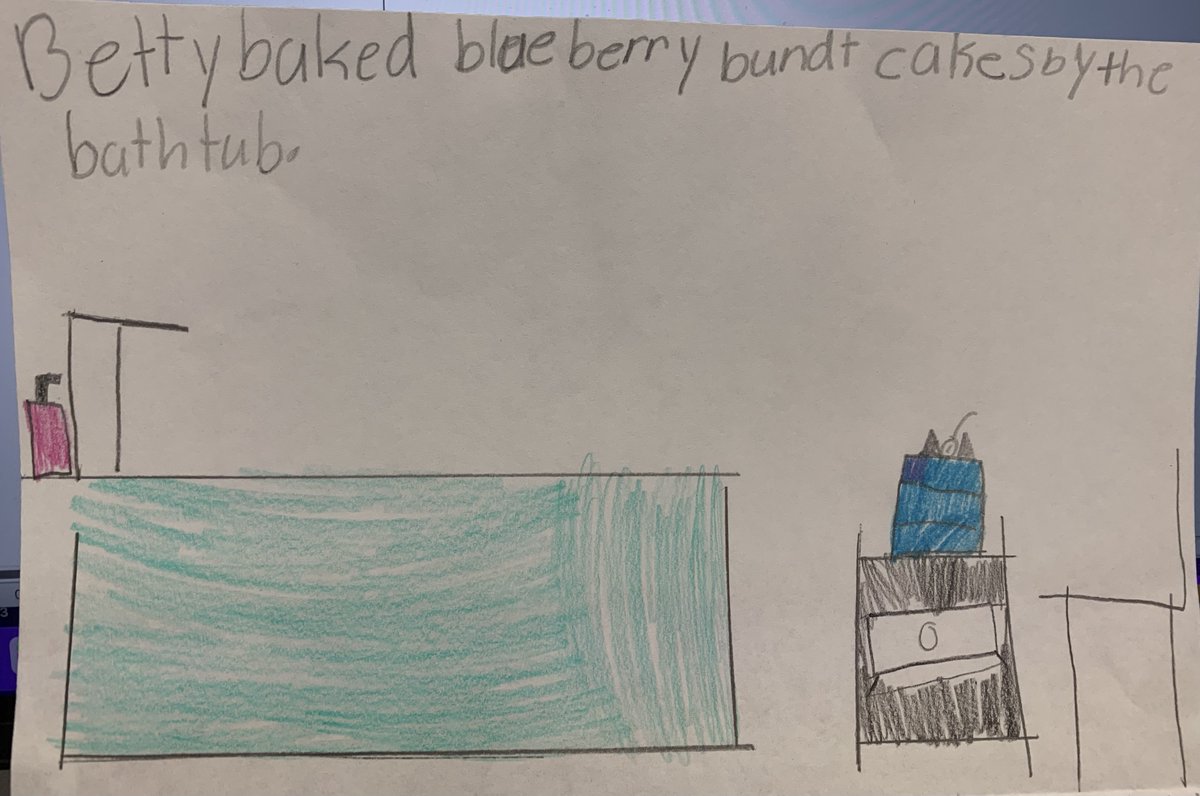 Betty baked blueberry bundt cakes by the
bathtub.